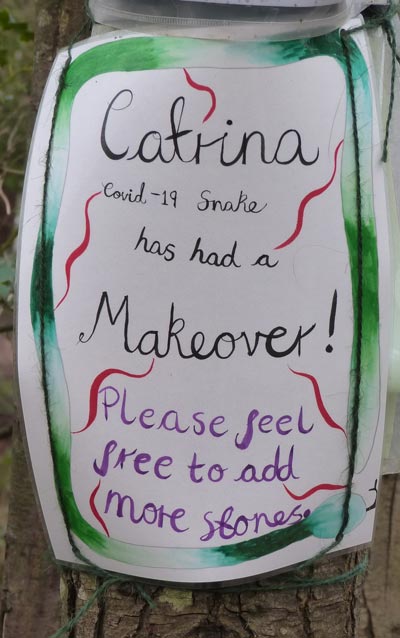 Catrina
Covid-19 Snake
has had a
Makeover!
Please feel
free to add
more stones.